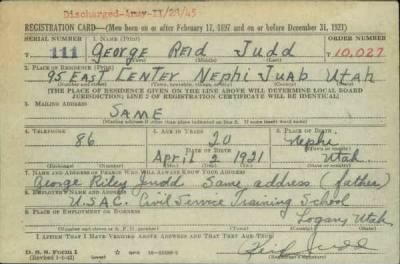 Discharged-Army 11/29/45
REGISTRATION CARD—(Men born on or after February 17, 1897 and on or before December 31, 1921)
SERIAL NUMBER 1. NAME (Print) ORDER NUMBER
111 George Reid Judd 10,027
2. PLACE OF RESIDENCE (Print)
95 East Center Nephi Juab Utah
[THE PLACE OF RESIDENCE GIVEN ON THE LINE ABOVE WILL DETERMINE LOCAL BOARD
JURISDICTION; LINE 2 OF REGISTRATION CERTIFICATE WILL BE IDENTICAL]
3. MAILING ADDRESS
SAME
[Mailing address if other than place indicated on line 2. If same insert word same]
4. TELEPHONE 5. AGE IN YEARS 6. PLACE OF BIRTH
86 20 Nephi
DATE OF BIRTH
April 2 1921 Utah
7. NAME AND ADDRESS OF PERSON WHO WILL ALWAYS KNOW YOUR ADDRESS
George Riley Judd Same address (father)
8. EMPLOYER'S NAME AND ADDRESS
U.S.A.C. Civil Service Training School
9. PLACE OF EMPLOYMENT OR BUSINESS
Logan, Utah
I AFFIRM THAT I HAVE VERIFIED ABOVE ANSWERS AND THAT THEY ARE TRUE.
D. S. S. Form 1
Reid Judd